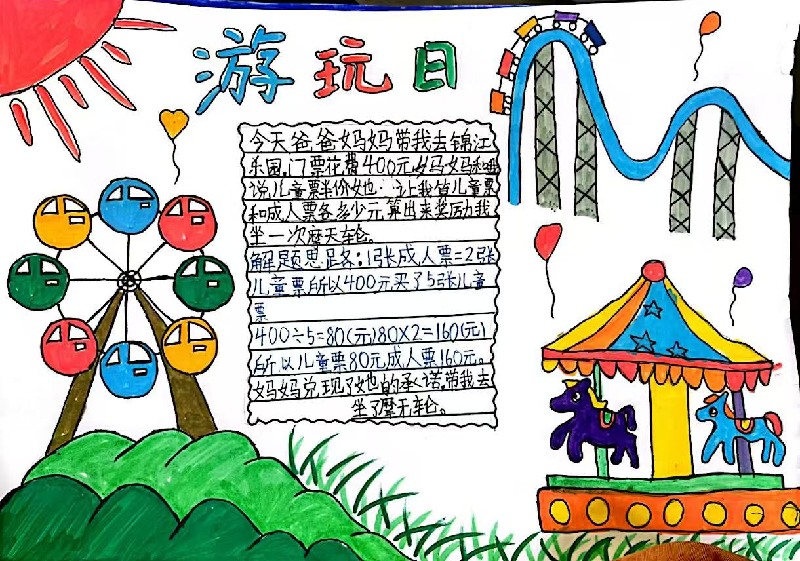 游玩日
今天爸爸妈妈带我去锦江
乐园,门票花费400元,妈妈和
说儿童票半价她:让我算儿童票
和成人票各多少元,算出来奖励我
坐一次摩天轮。
解题思路:1张成人票=2张
儿童票所以400元买了5张儿童
票
400÷5=80(元)80×2=160(元)
所以儿童票80元成人票160元。
妈妈兑现了她的承诺,带我去
坐了摩天轮。